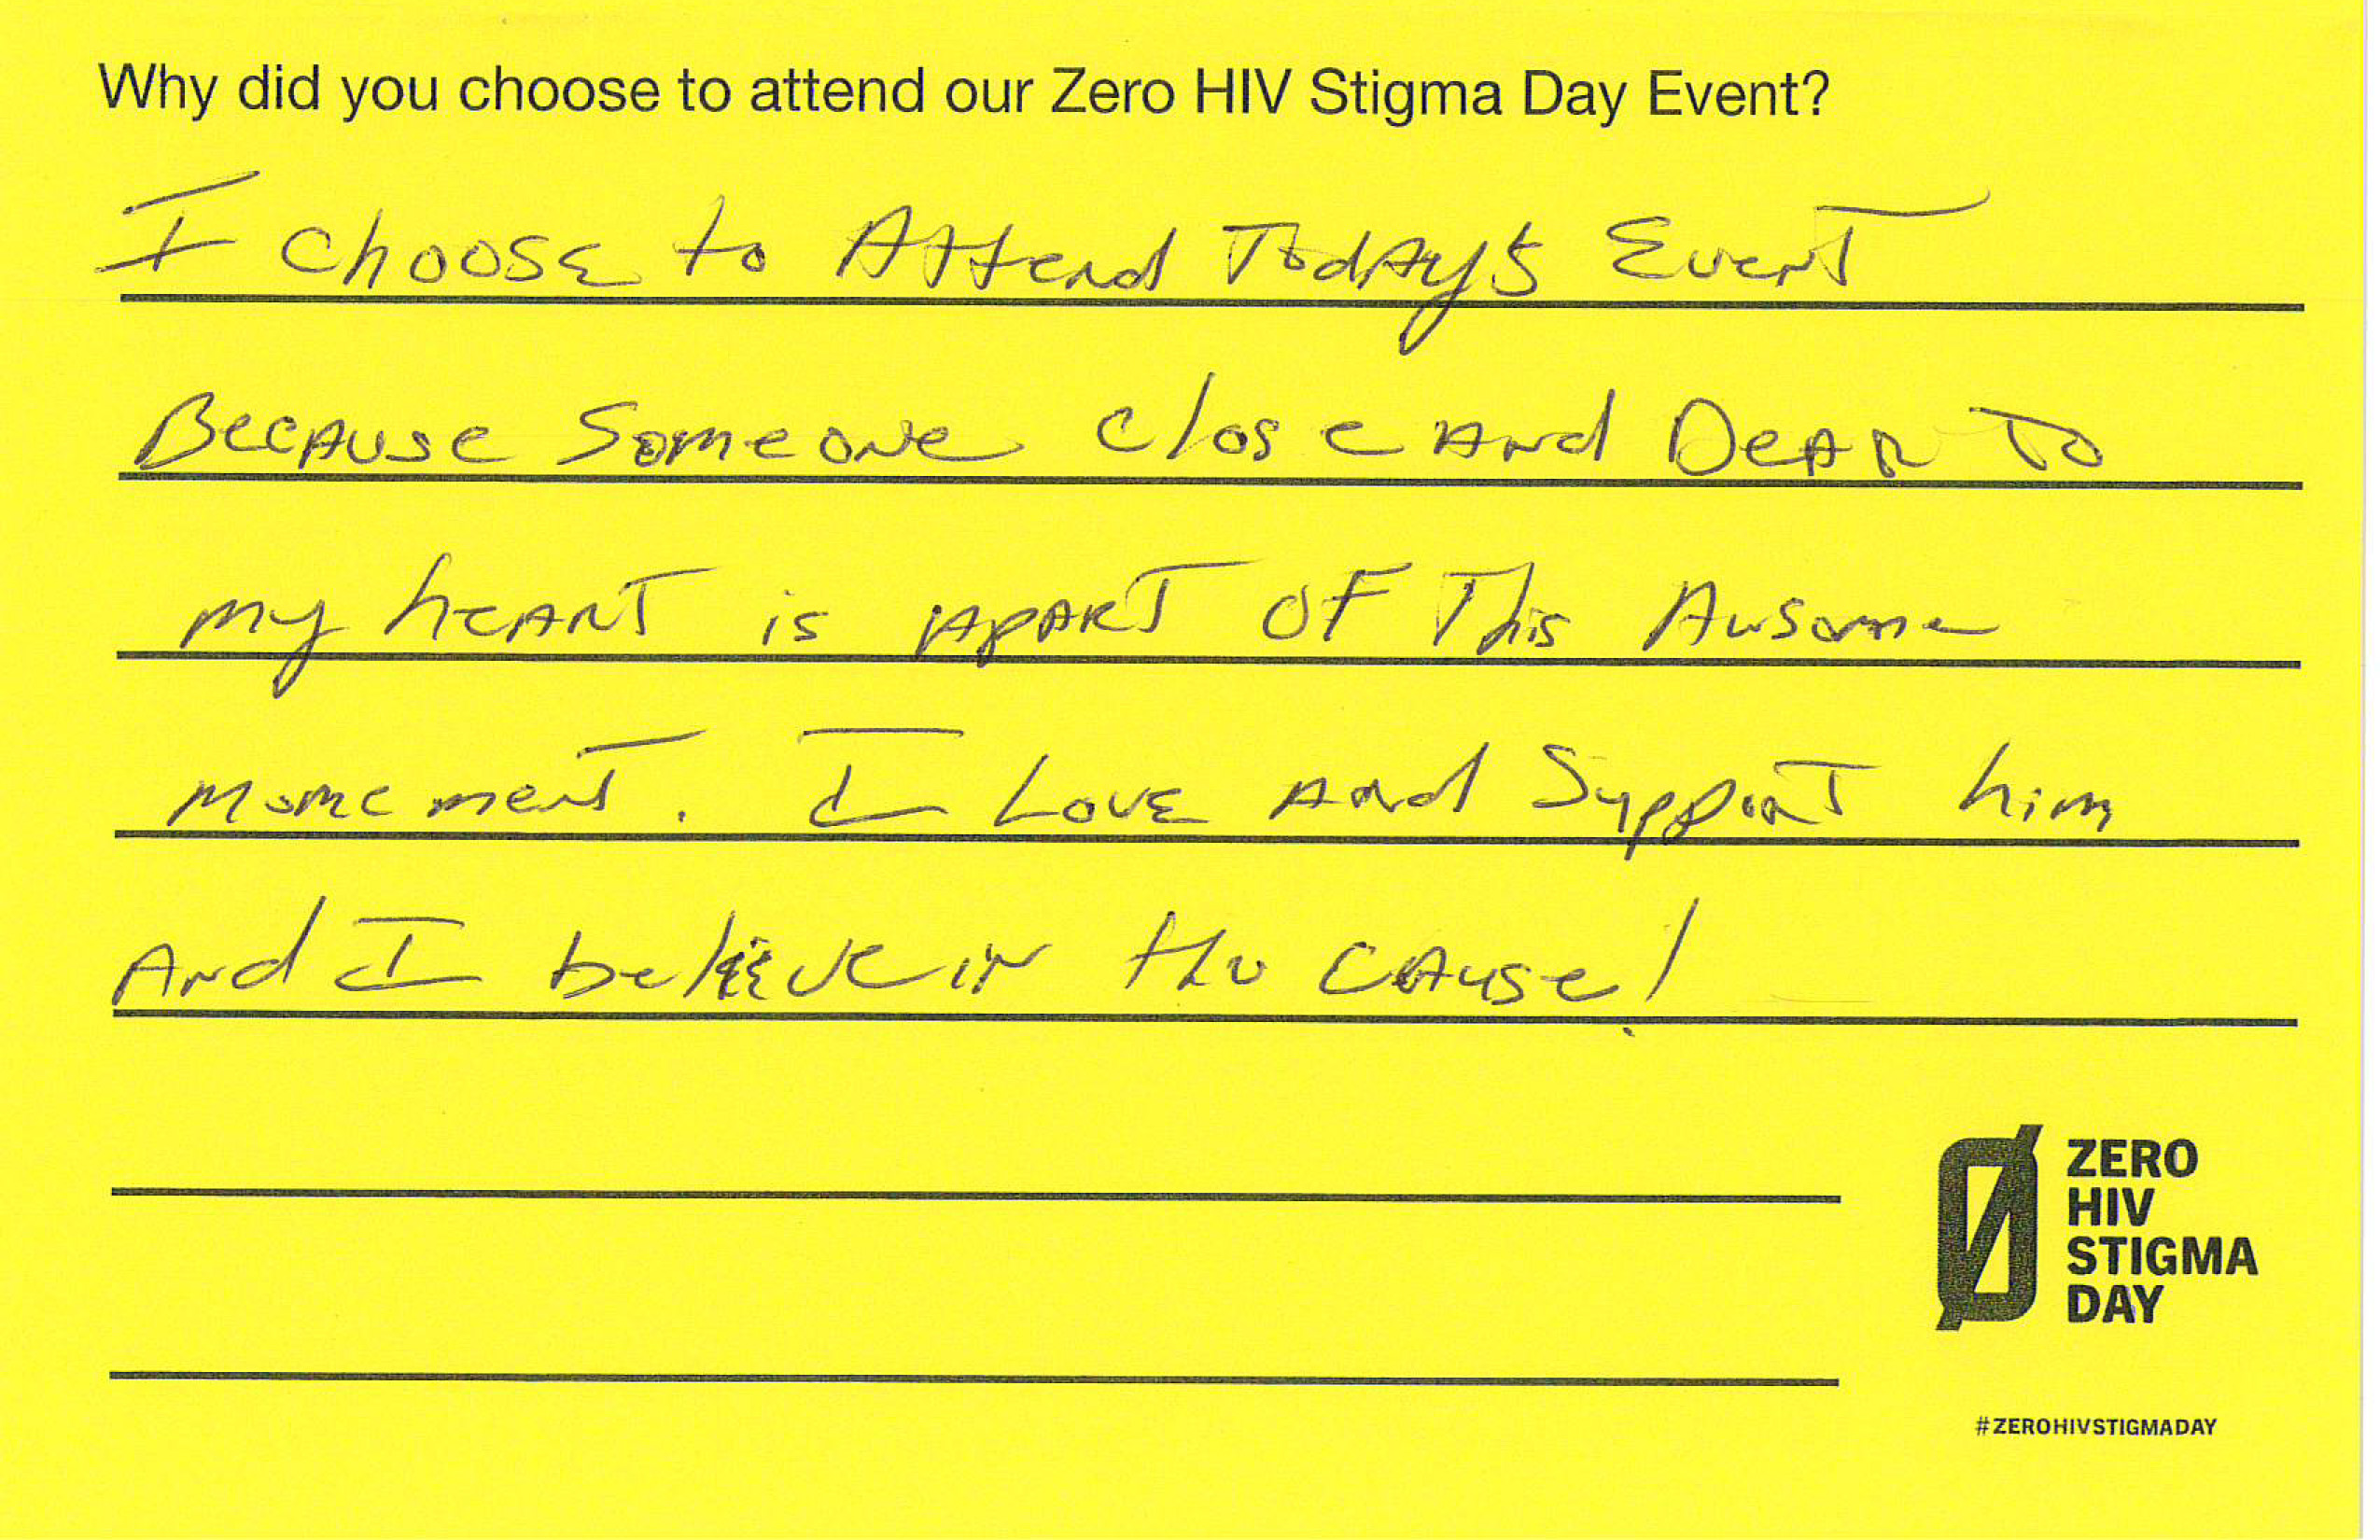 Why did you choose to attend our Zero HIV Stigma Day Event?
I choose to Attend Today's Event
Because Someone close and Dear to
my heart is apart of This Awsome
Momement. I Love and Support him
And I believe in the cause!
ZERO
HIV
STIGMA
DAY
#ZEROHIVSTIGMADAY